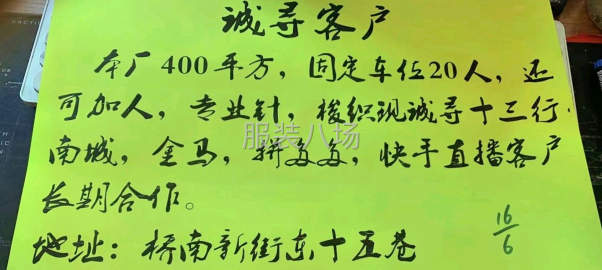 诚寻客户
本厂400平方，固定车位20人，还
可加人，专业针，梭织现诚寻十三行
南城，金马，拼多多，快手直播客户
长期合作。
地址：桥南新街东十五巷
16/6
服装八场